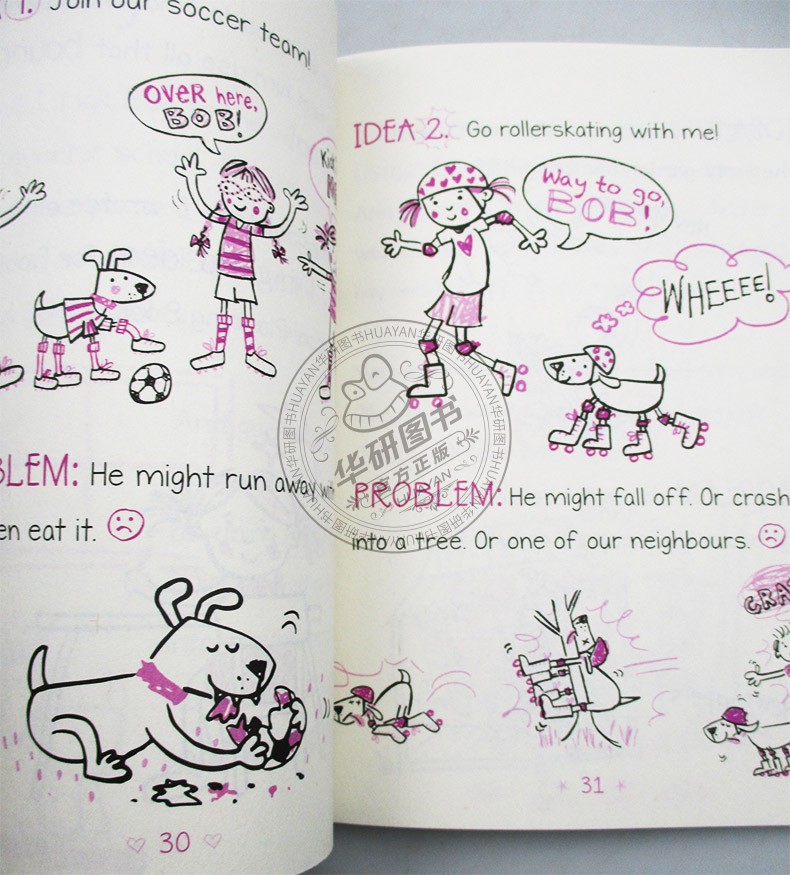 1. Join our soccer team!
OVER here,
BOB!
PROBLEM: He might run away
eat it.
30
IDEA 2. Go rollerskating with me!
Way to go,
BOB!
WHEEEE!
PROBLEM: He might fall off. Or crash
into a tree. Or one of our neighbours.
31
华研图书HUAYAN华研图书HUAYAN
华研图书
官方正版